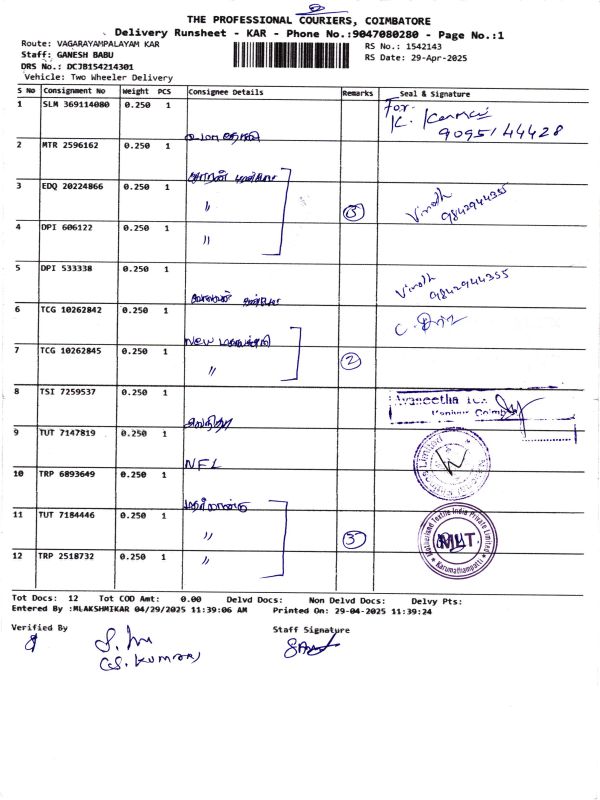 THE PROFESSIONAL COURIERS, COIMBATORE
Delivery Runsheet - KAR - Phone No.:9047080280 - Page No.:1
Route: VAGARAYAMPALAYAM KAR
RS No.: 1542143
Staff: GANESH BABU
RS Date: 29-Apr-2025
DRS No.: DCJB154214301
Vehicle: Two Wheeler Delivery
S No Consignment No Weight PCS Consignee Details Remarks Seal & Signature
1 SLM 369114080 0.250 1
For
K.
9095144428
2 MTR 2596162 0.250 1
3 EDQ 20224866 0.250 1
〃
3
Vinoth
9842944355
4 DPI 606122 0.250 1
〃
5 DPI 533338 0.250 1
Vinoth
9842944355
6 TCG 10262842 0.250 1
New
7 TCG 10262845 0.250 1
〃
2
8 TSI 7259537 0.250 1
9 TUT 7147819 0.250 1
NFL
10 TRP 6893649 0.250 1
11 TUT 7184446 0.250 1
〃
3
Motherland Textile India Private Limited
Karumathampatti
12 TRP 2518732 0.250 1
〃
Tot Docs: 12 Tot COD Amt: 0.00 Delvd Docs: Non Delvd Docs: Delvy Pts:
Entered By :MLAKSHMIKAR 04/29/2025 11:39:06 AM Printed On: 29-04-2025 11:39:24
Verified By
Staff Signature
(S. KUMAR)